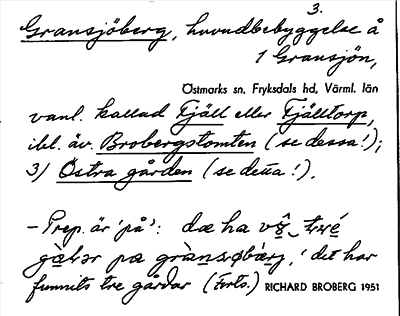 3.
Gransjöberg, huvudbebyggelse å
1 Gransjön,
Östmarks sn. Fryksdals hd, Värml. län
vanl. kallad Tjäll eller Tjälltorp,
ibl. äv. Brobergstomten (se dessa!);
3) Östra gården (se detta!).
– Prep. är 'på': dæ ha
pa gràn̲sǿbæ̀rj, 'det har
funnits tre gårdar (Forts.) RICHARD BROBERG 1951